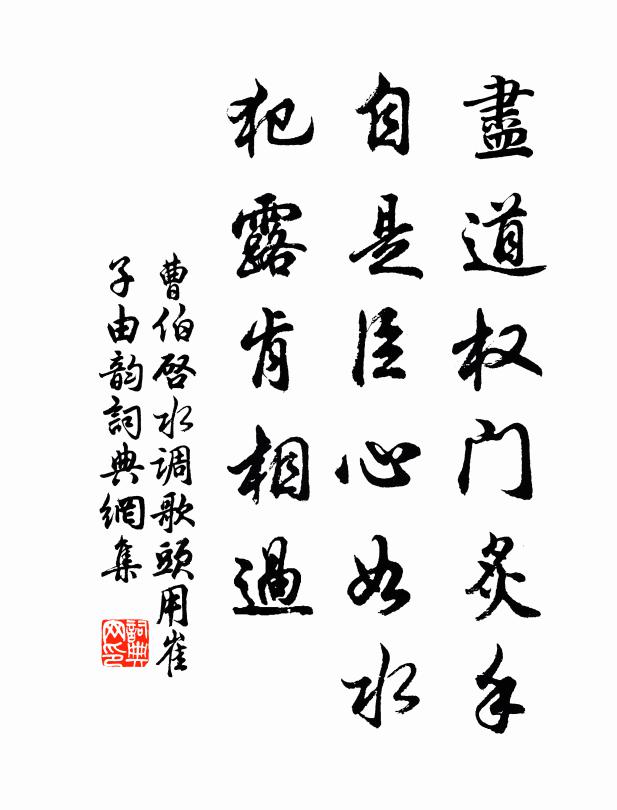 盡道权门炙手
自是臣心如水
犯露肯相過
曹伯啓水调歌頭用崔
子由韵詞典網集
詞典
网印